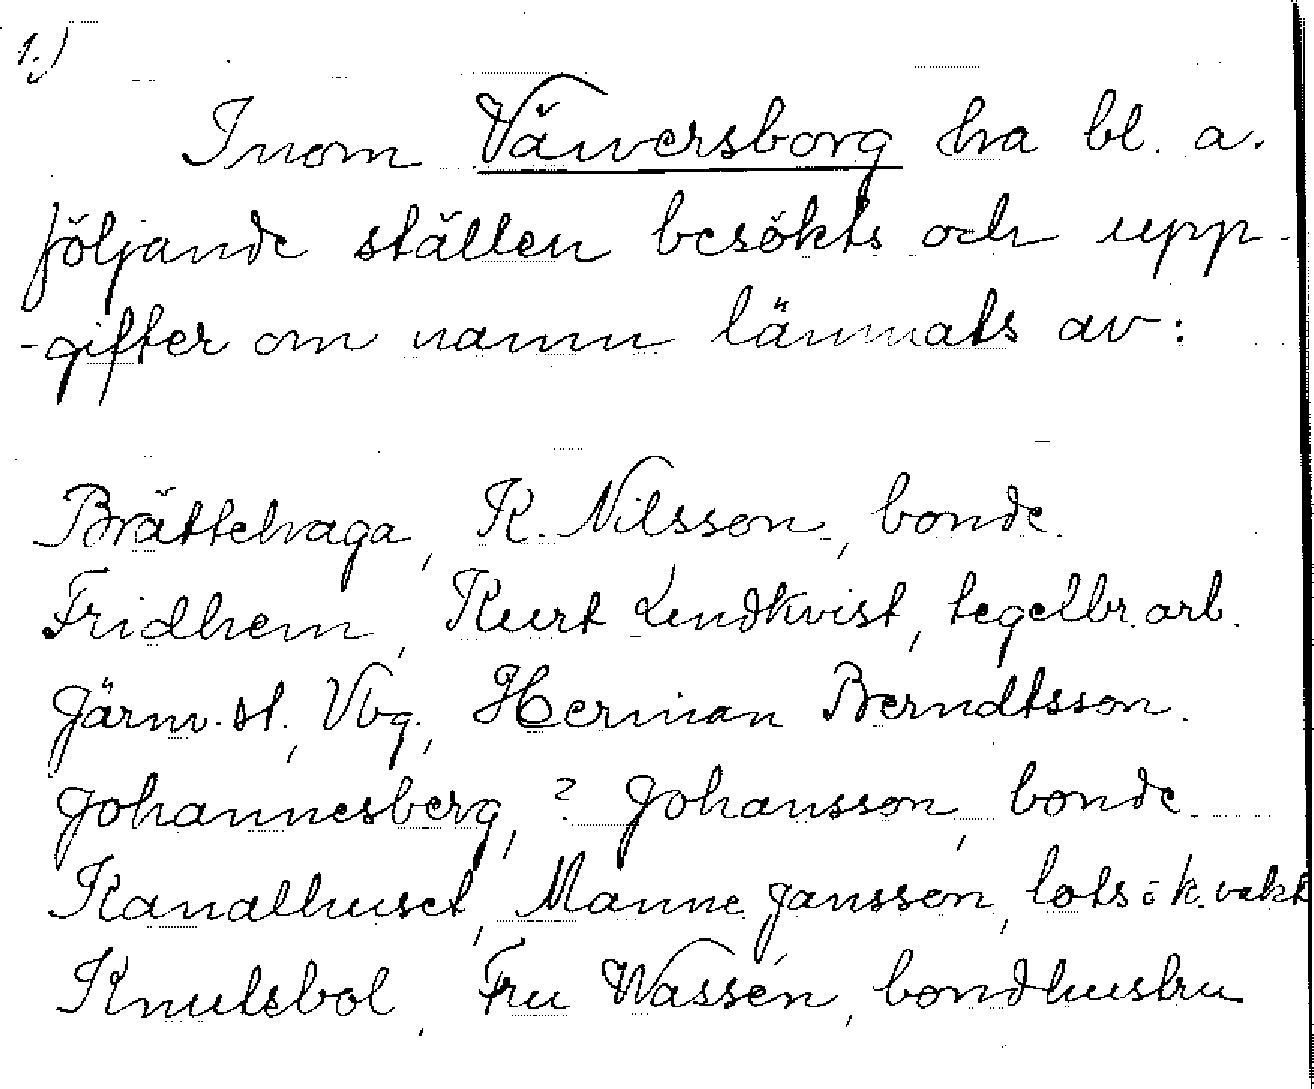 1.)
Inom Vänersborg ha bl. a.
följande ställen besökts och upp-
-gifter om namn lämnats av:
Brättehaga, K. Nilsson, bonde.
Fridhem, Kurt Lundkvist, tegelbr.arb.
Järnv.st., Vbg., Herman Berndtsson.
Johannesberg, ? Johansson, bonde.
Kanalhuset, Manne Jansson, lots o k.vakt
Knutsbol, Fru Wassén, bondhustru